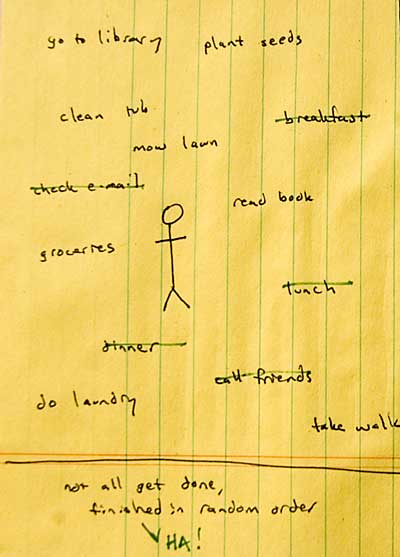 go to library
plant seeds
clean tub
breakfast
mow lawn
check e-mail
read book
groceries
lunch
dinner
call friends
do laundry
take walk
not all get done,
finished in random order
HA!